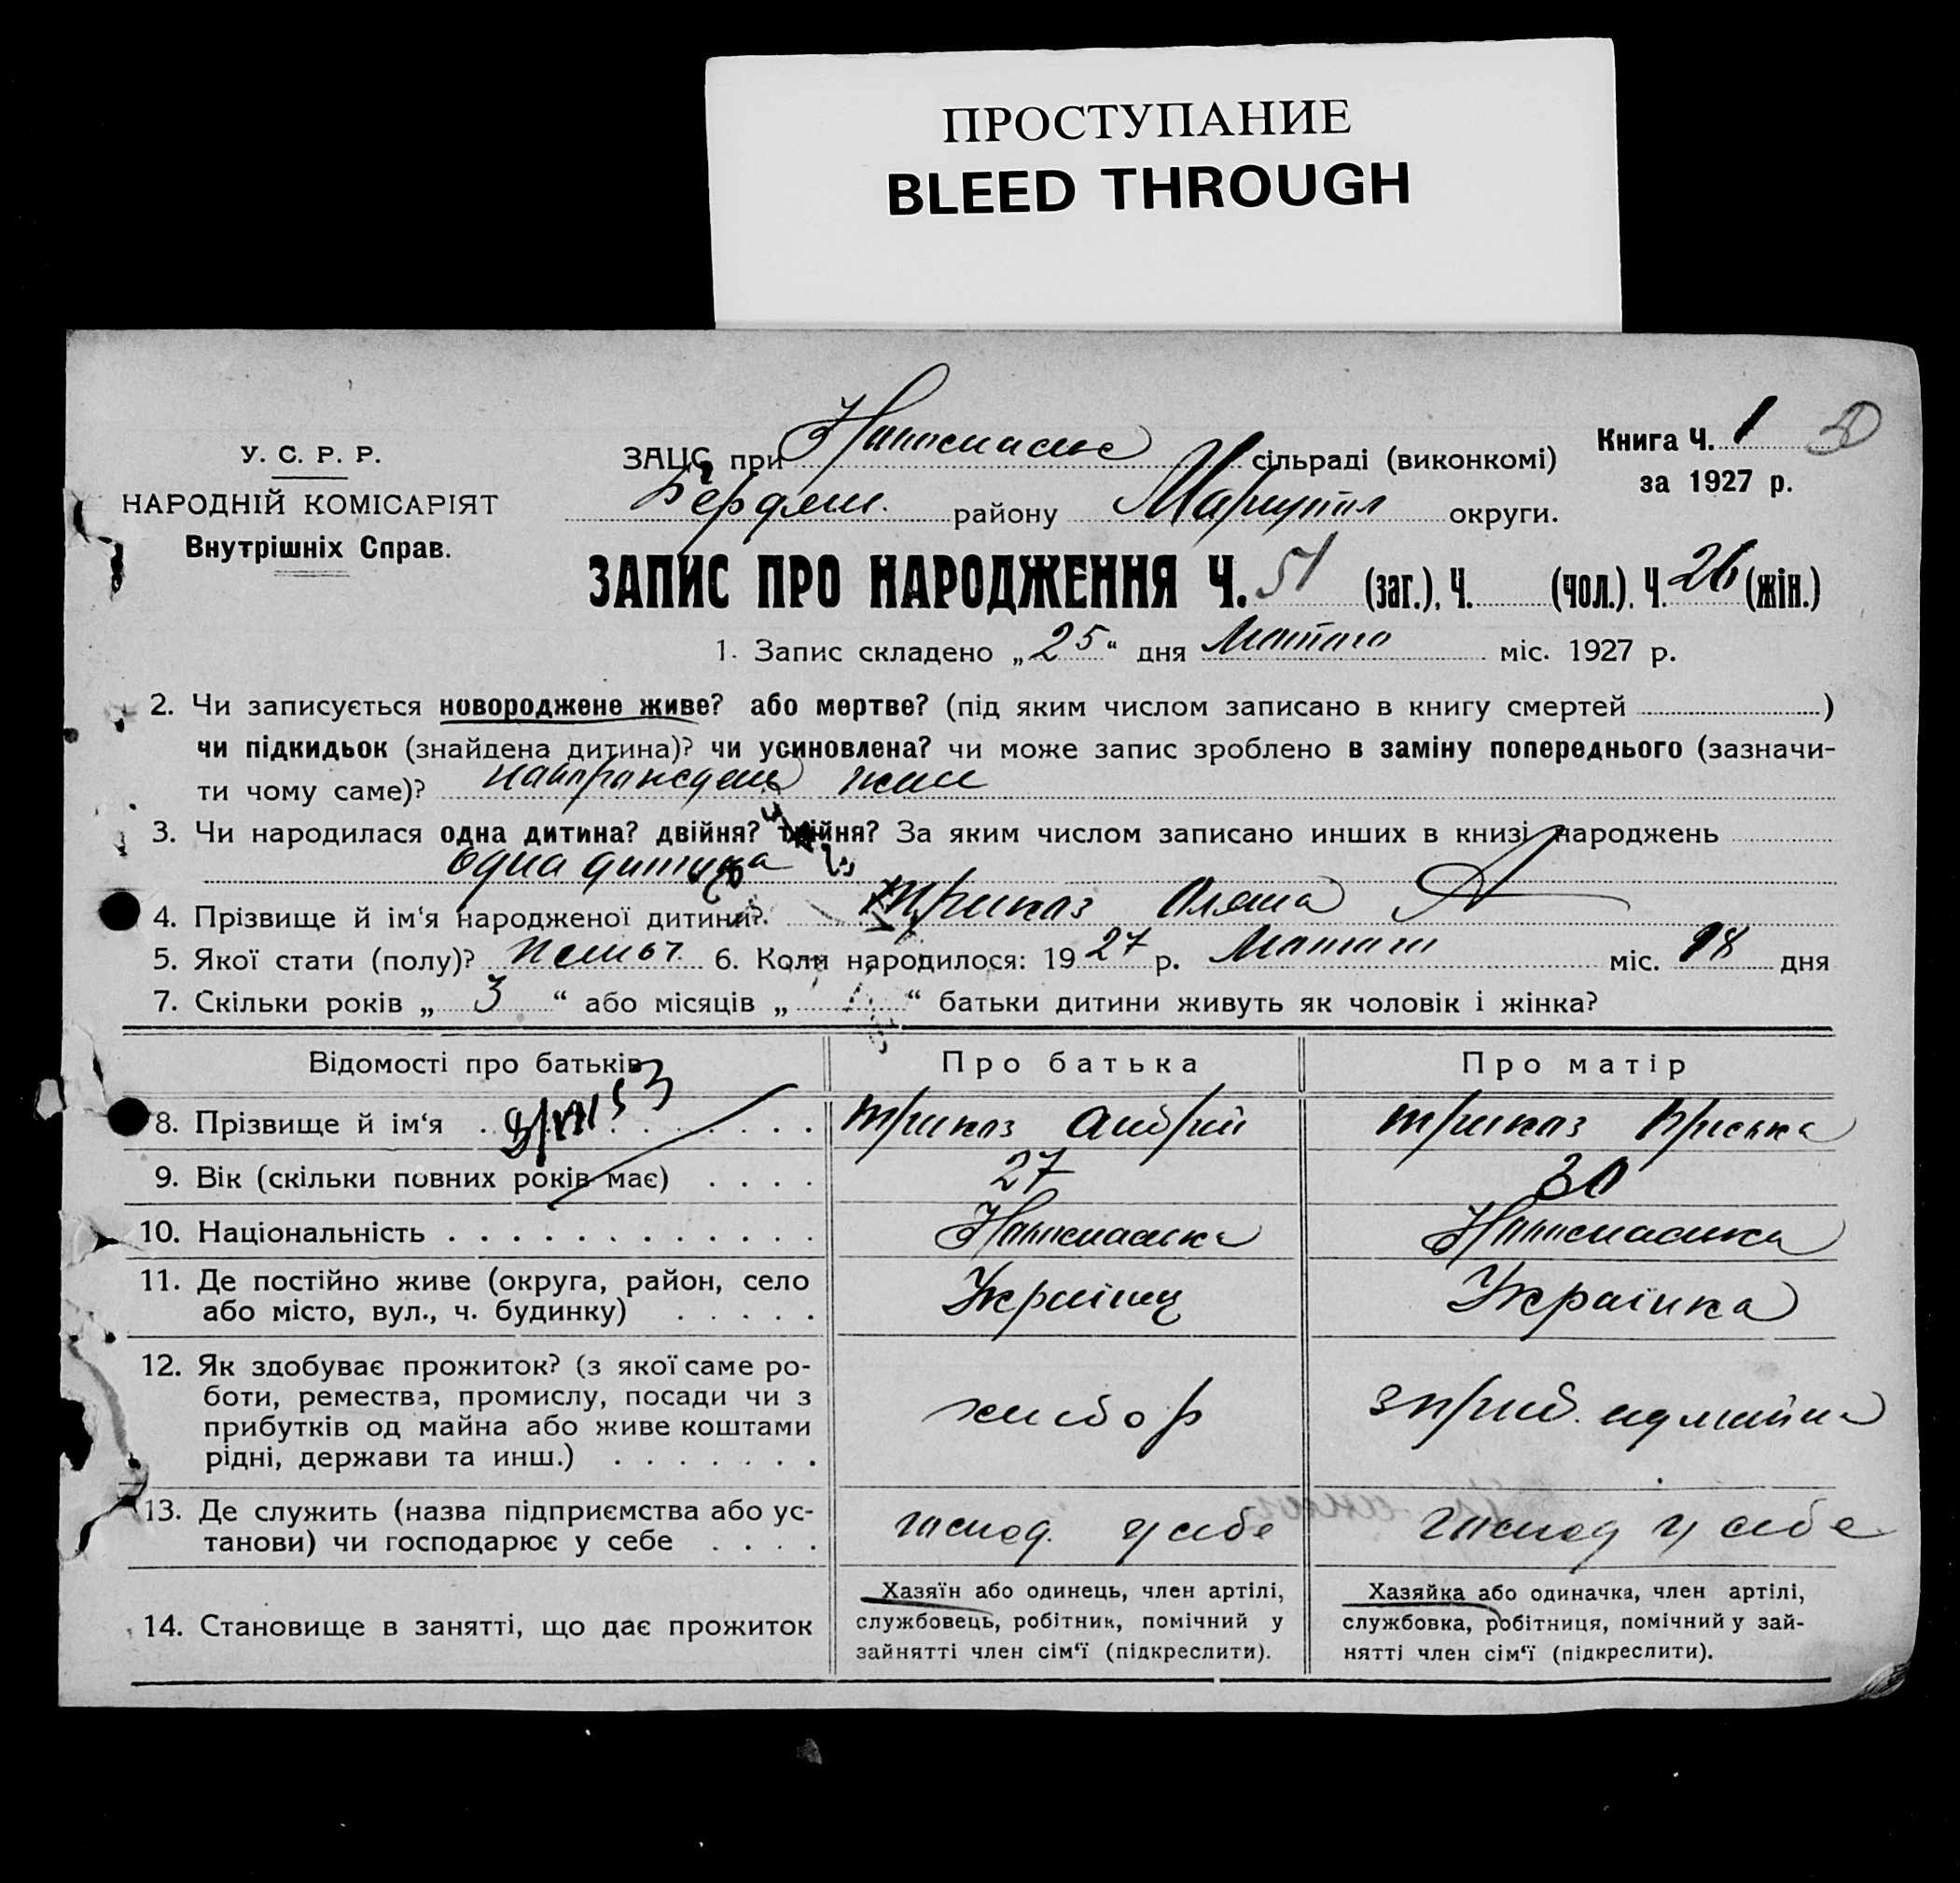 ПРОСТУПАНИЕ
BLEED THROUGH
У. С. Р. Р.
НАРОДНІЙ КОМІСАРІЯТ
Внутрішніх Справ.
ЗАЦС при Новоспаське сільраді (виконкомі)
Бердян. району Маріупіл округи.
Книга Ч. 1
за 1927 р.
ЗАПИС ПРО НАРОДЖЕННЯ Ч. 51 (заг.), Ч. (чол.). Ч. 26 (жін.)
1. Запис складено „25“ дня Лютого міс. 1927 р.
2. Чи записується новороджене живе? або мертве? (під яким числом записано в книгу смертей )
чи підкидьок (знайдена дитина)? чи усиновлена? чи може запис зроблено в заміну попереднього (зазначи-
ти чому саме)?
3. Чи народилася одна дитина? двійня? трійня? За яким числом записано инших в книзі народжень
одна дитина
4. Прізвище й ім‘я народженої дитини? Приказ Оляна А
5. Якої стати (полу)? 6. Коли народилося: 1927 р. Лютого міс. 18 дня
7. Скільки років „3“ або місяців „ “ батьки дитини живуть як чоловік і жінка?
Відомості про батьків
Про батька
Про матір
8. Прізвище й ім‘я
Приказ Андрій
Приказ Пріська
9. Вік (скільки повних років має)
27
30
10. Національність
Новоспаська
Новоспаська
11. Де постійно живе (округа, район, село
або місто, вул., ч. будинку)
Українц
Українка
12. Як здобуває прожиток? (з якої саме ро-
боти, ремества, промислу, посади чи з
прибутків од майна або живе коштами
рідні, держави та инш.)
хлібор
з приб. од майна
13. Де служить (назва підприємства або ус-
танови) чи господарює у себе
господ. у себе
господ у себе
14. Становище в занятті, що дає прожиток
Хазяїн або одинець, член артілі,
службовець, робітник, помічний у
зайнятті член сім‘ї (підкреслити).
Хазяйка або одиначка, член артілі,
службовка, робітниця, помічний у зай-
нятті член сім‘ї (підкреслити).